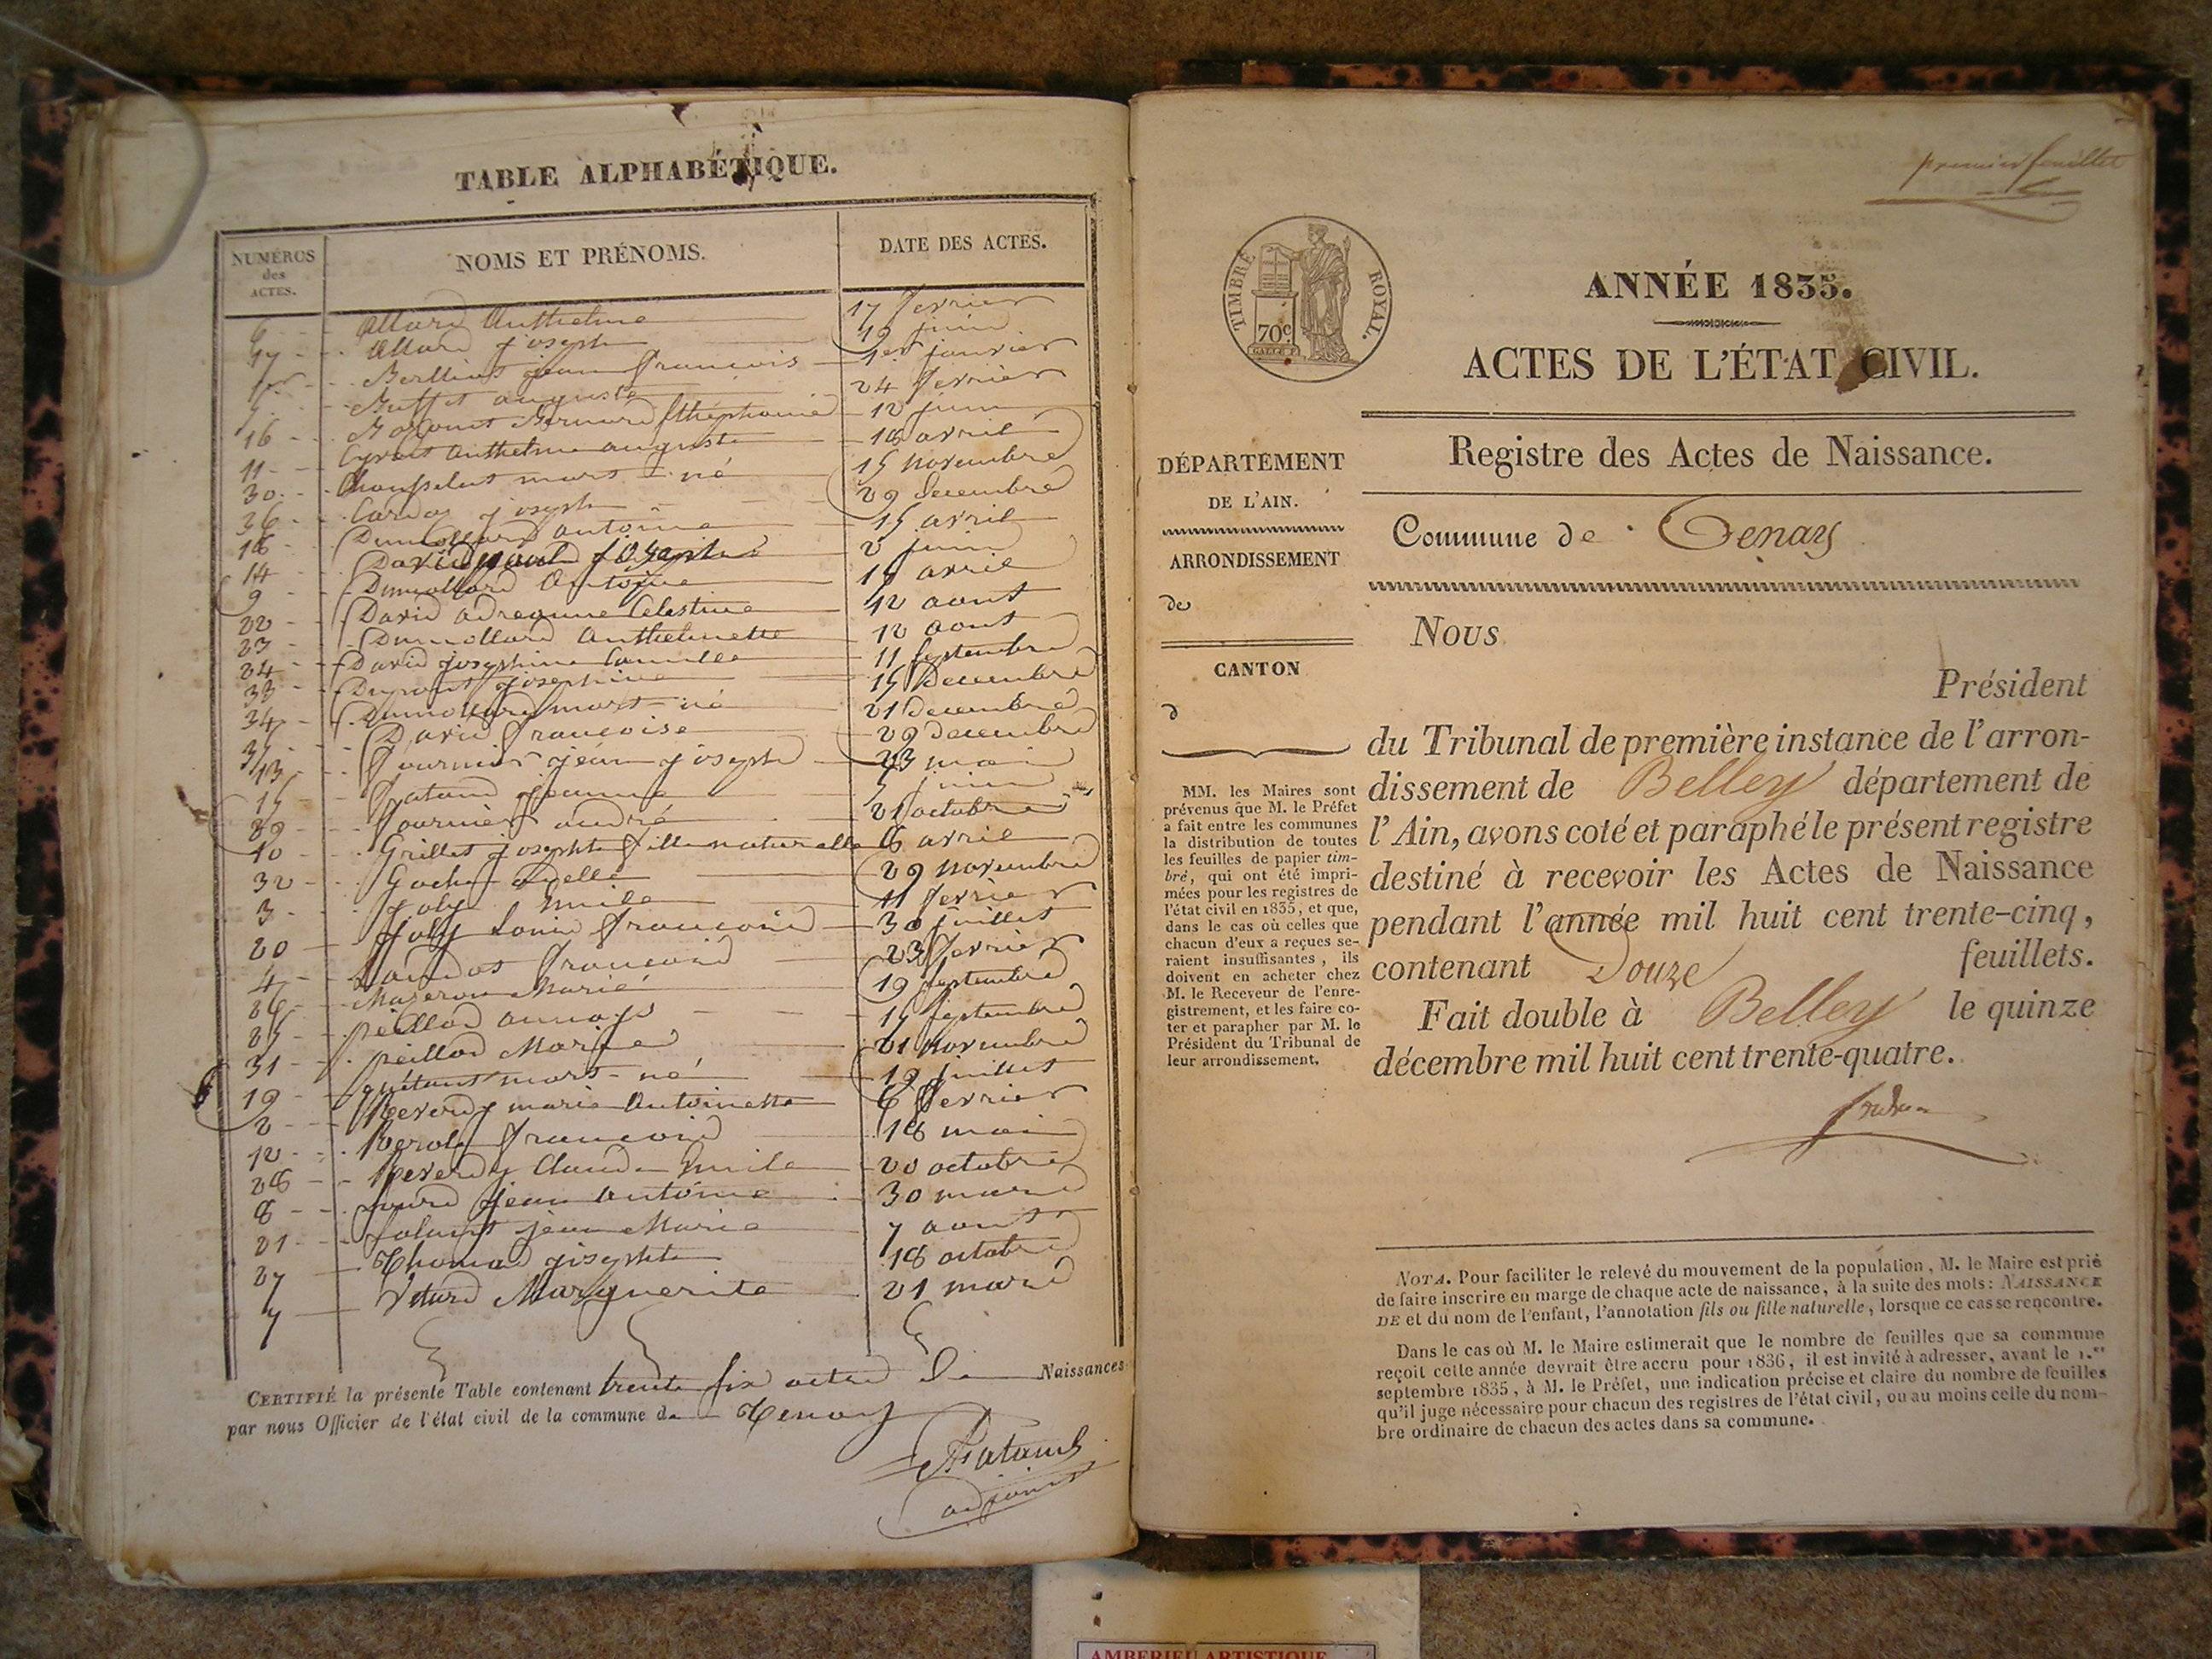 TABLE ALPHABÉTIQUE.
NUMÉROS des ACTES.
NOMS ET PRÉNOMS.
DATE DES ACTES.
6 Allard Anthelme 17 fevrier
17 Allard joseph 19 juin
1er jean francois 1er janvier
5 Buffet auguste 24 fevrier
16 Bernard 12 juin
11 Anthelme auguste 18 avril
30 mort-né 15 novembre
36 joseph 29 decembre
18 Dumollard antoine 15 avril
14 David joseph 2 juin
9 Dumollard Antoine 15 avril
22 David Celestine 12 aout
23 Dumollard Anthelmette 12 aout
24 David josephine Camille 11 septembre
33 josephine 15 decembre
34 Dumollard mort-né 21 decembre
35 David francoise 29 decembre
13 fournier jean joseph 23 mai
15 jeanne 5 juin
29 fournier andré 21 octobre
10 Grillet josephte fille naturelle 6 avril
32 29 novembre
3 joly Emile 11 fevrier
20 joly Louis francois 30 juillet
4 francois 23 fevrier
26 Marie 19 septembre
25 peillod 15 septembre
31 peillod Marie 21 novembre
19 mort-né 19 juillet
2 Reverdy marie Antoinette 6 fevrier
12 francois 18 mai
28 Reverdy Claude Emile 20 octobre
8 jean antoine 30 mars
21 jean Marie 7 aout
27 Thomas josephte 18 octobre
7 Marguerite 21 mars
CERTIFIÉ la présente Table contenant trente six actes de Naissances
par nous Officier de l'état civil de la commune de Tenay
adjoint
premier feuillet
TIMBRE ROYAL.
70c
ANNÉE 1835.
ACTES DE L'ÉTAT CIVIL.
Registre des Actes de Naissance.
DÉPARTEMENT
DE L'AIN.
ARRONDISSEMENT
de
CANTON
d
MM. les Maires sont
prévenus que M. le Préfet
a fait entre les communes
la distribution de toutes
les feuilles de papier tim-
bré, qui ont été impri-
mées pour les registres de
l'état civil en 1835, et que,
dans le cas où celles que
chacun d'eux a reçues se-
raient insuffisantes, ils
doivent en acheter chez
M. le Receveur de l'enre-
gistrement, et les faire co-
ter et parapher par M. le
Président du Tribunal de
leur arrondissement.
Commune de Tenay
Nous
Président
du Tribunal de première instance de l'arron-
dissement de Belley département de
l'Ain, avons coté et paraphé le présent registre
destiné à recevoir les Actes de Naissance
pendant l'année mil huit cent trente-cinq,
contenant Douze feuillets.
Fait double à Belley le quinze
décembre mil huit cent trente-quatre.
NOTA. Pour faciliter le relevé du mouvement de la population, M. le Maire est prié
de faire inscrire en marge de chaque acte de naissance, à la suite des mots: NAISSANCE
DE et du nom de l'enfant, l'annotation fils ou fille naturelle, lorsque ce cas se rencontre.
Dans le cas où M. le Maire estimerait que le nombre de feuilles que sa commune
reçoit cette année devrait être accru pour 1836, il est invité à adresser, avant le 1.er
septembre 1835, à M. le Préfet, une indication précise et claire du nombre de feuilles
qu'il juge nécessaire pour chacun des registres de l'état civil, ou au moins celle du nom-
bre ordinaire de chacun des actes dans sa commune.
AMBERIEU ARTISTIQUE